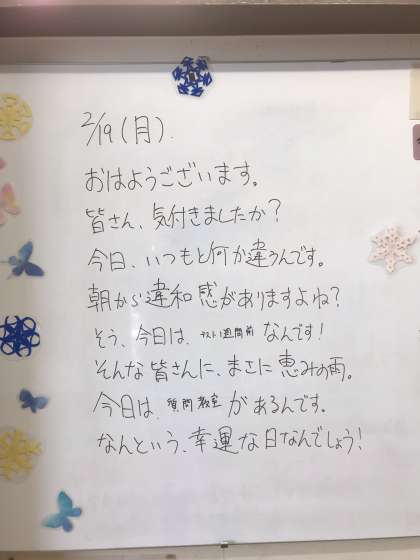 2/19(月).
おはようございます。
皆さん、気付きましたか?
今日、いつもと何か違うんです。
朝から違和感がありますよね?
そう、今日は、テスト1週間前なんです!
そんな皆さんに、まさに恵みの雨。
今日は、質問教室があるんです。
なんという、幸運な日なんでしょう!